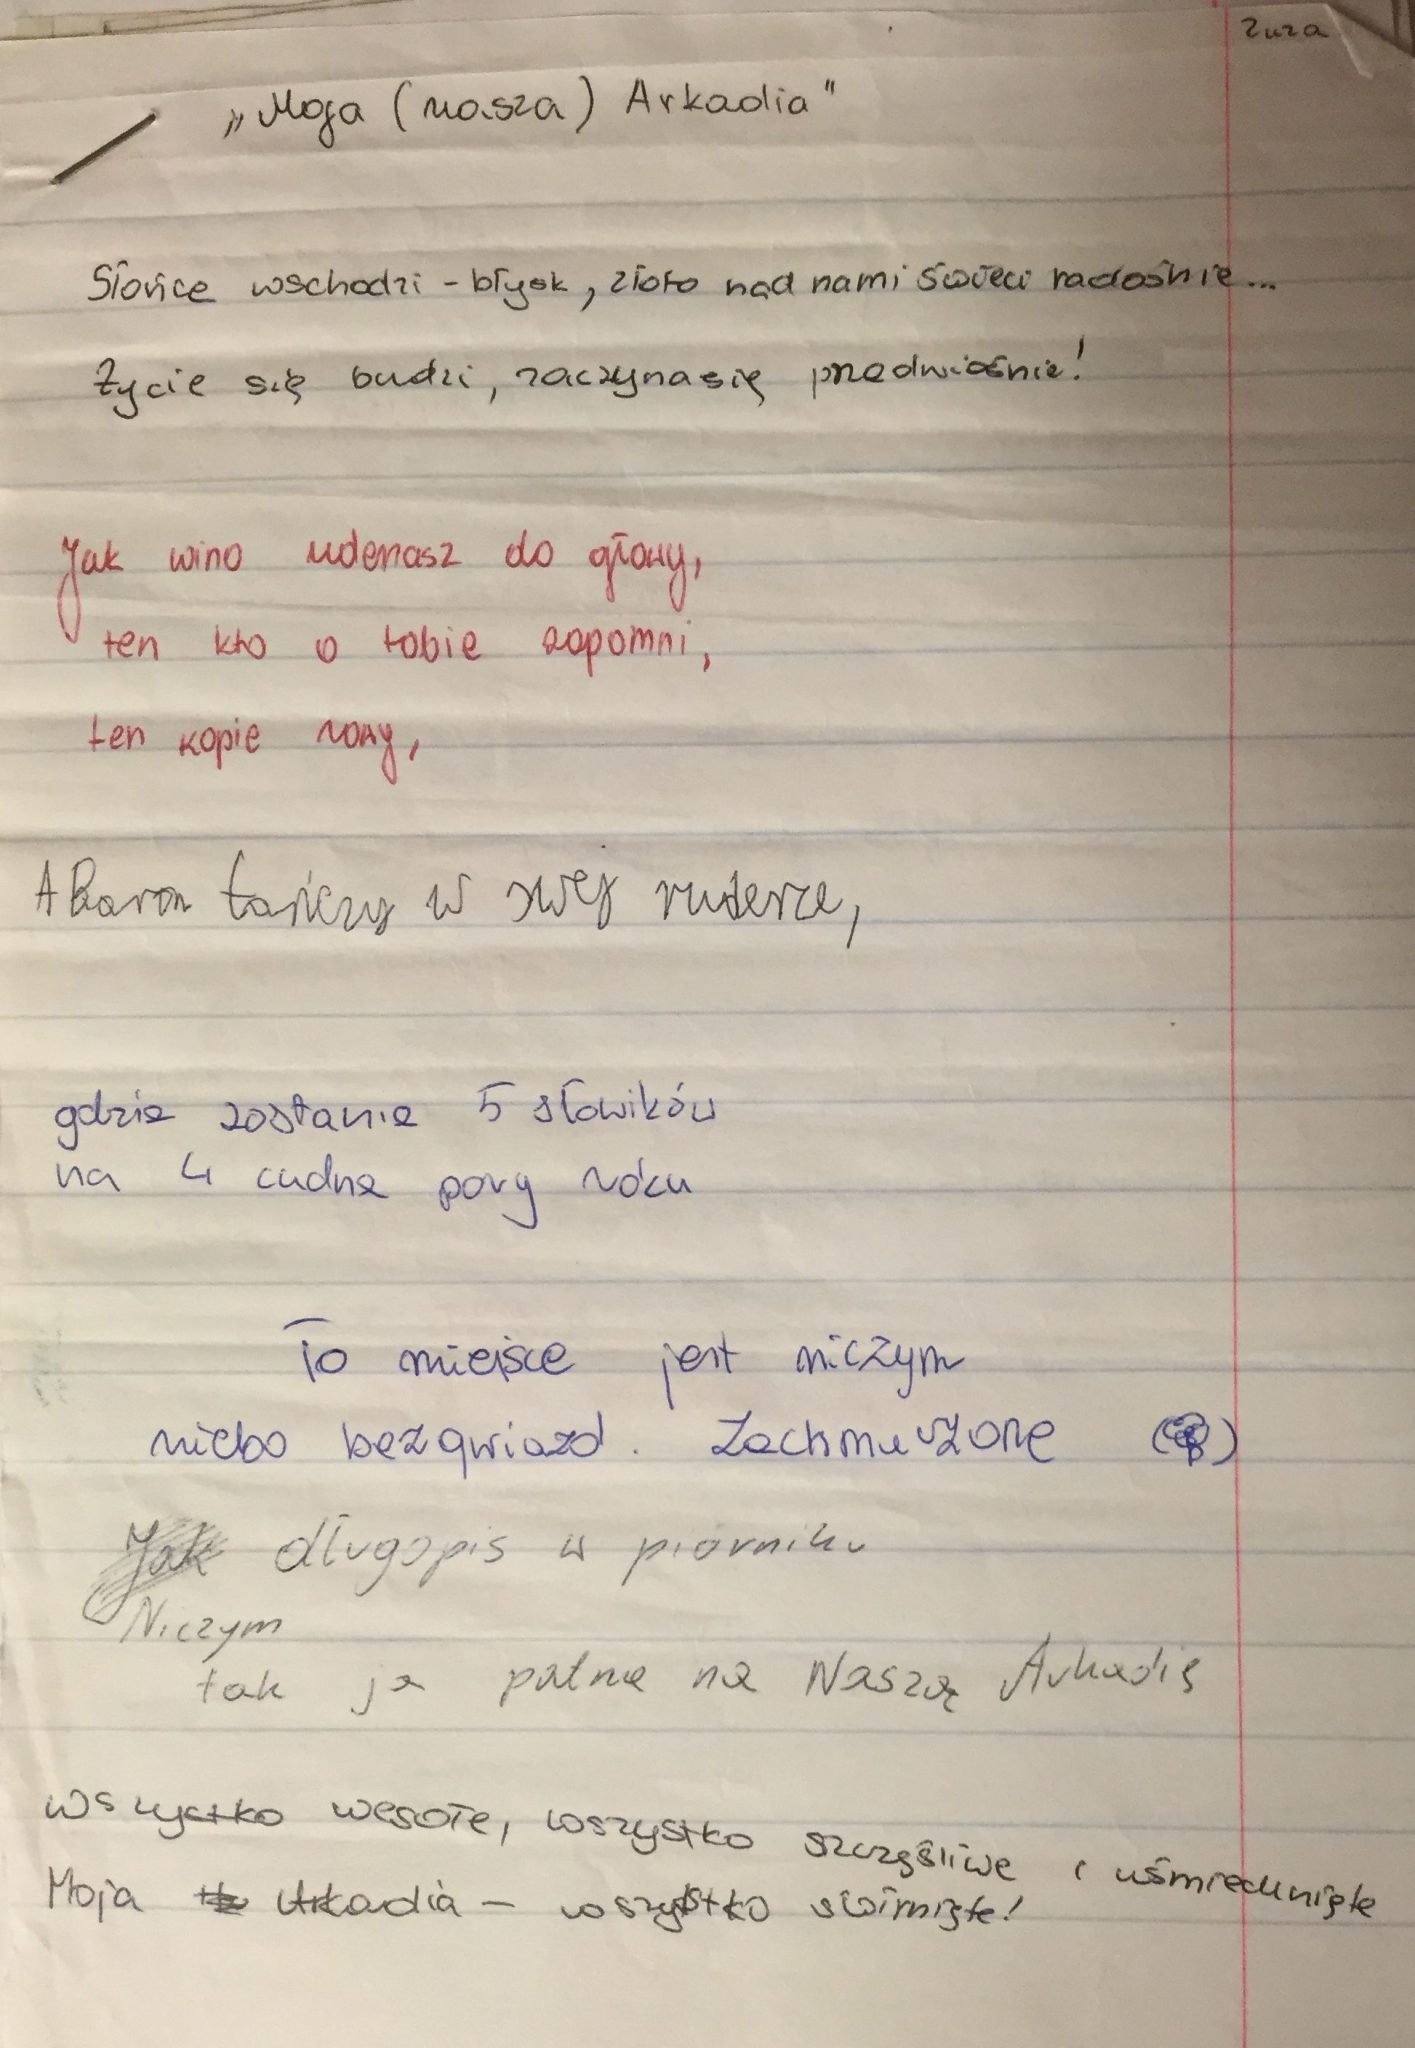 Zuza
„Moja (nasza) Arkadia"
Słońce wschodzi - błysk, złoto nad nami świeci radośnie...
Życie się budzi, zaczyna się przedwiośnie!
Jak wino uderzasz do głowy,
ten kto o tobie zapomni,
ten kopie rowy,
A Baron tańczy w swej ruderze,
gdzie zostanie 5 słowików
na 4 cudne pory roku
To miejsce jest niczym
niebo bez gwiazd. Zachmurzone
Jak długopis w piórniku
Niczym
tak ja patrze na Naszą Arkadię
wszystko wesołe, wszystko szczęśliwe i uśmiechnięte
Moja Arkadia - wszystko świrnięte!